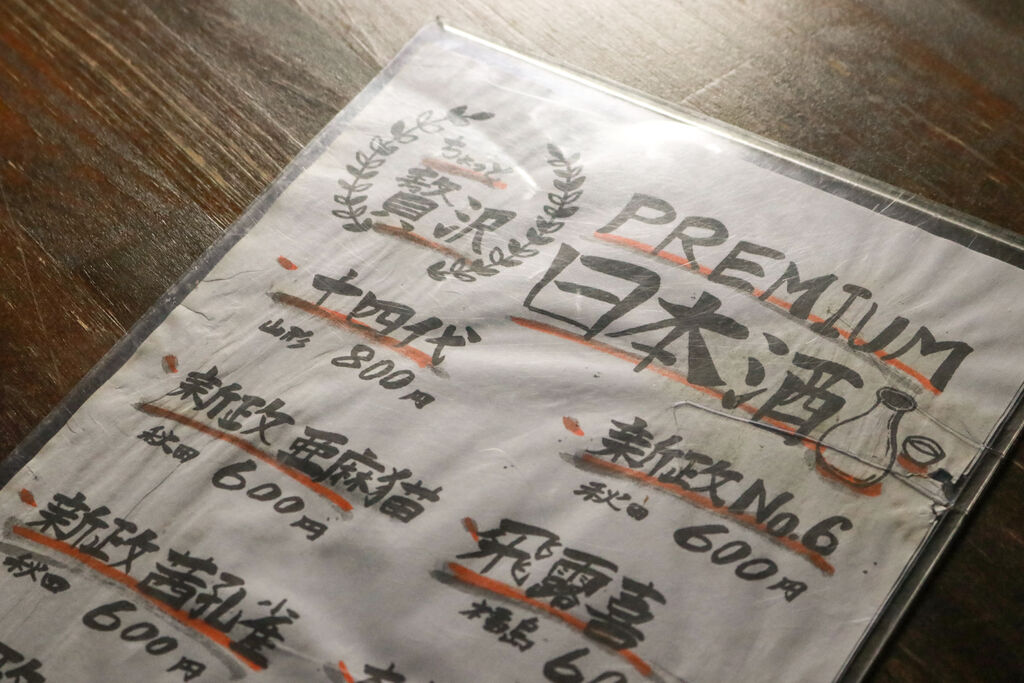 ちょっと
贅沢
PREMIUM
日本酒
十四代
山形 800円
新政 亜麻猫
秋田 600円
新政 茜孔雀
秋田 600円
新政No.6
秋田 600円
飛露喜
福島